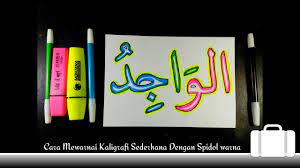 الوَاجِدُ
Cara Mewarnai Kaligrafi Sederhana Dengan Spidol warna